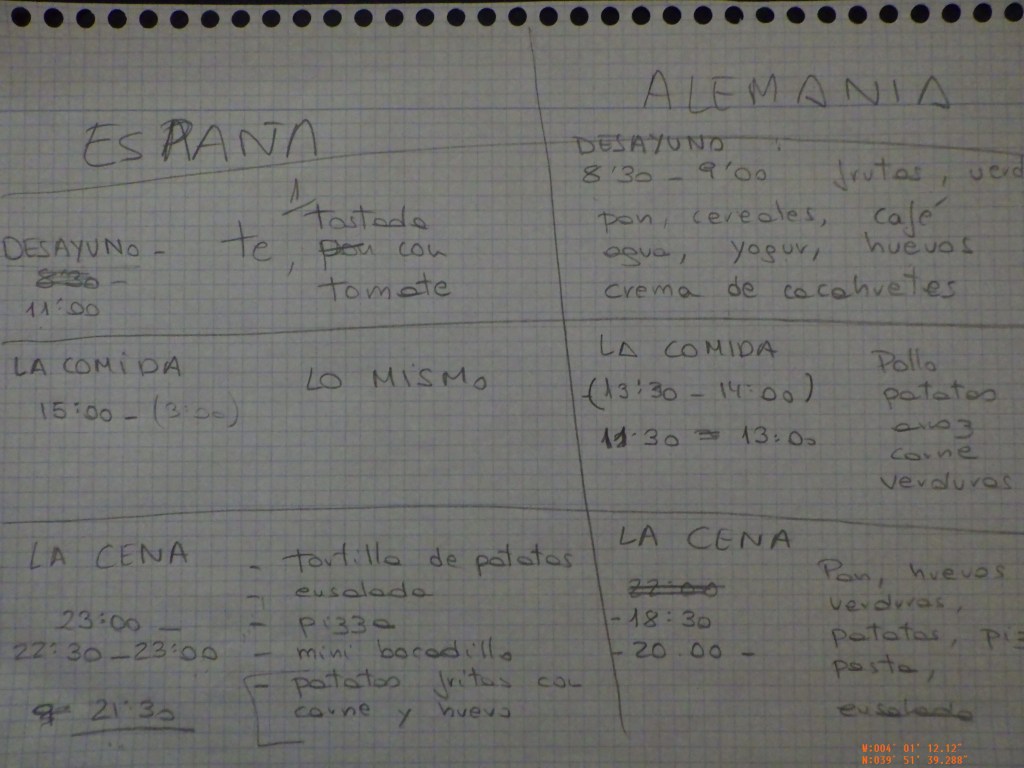 ESPAÑA
DESAYUNO - te, 1 tostada
8:30 - pan con
11:00 tomate
LA COMIDA LO MISMO
15:00 - (3:00)
LA CENA - tortilla de patatas
- ensalada
23:00 - - pizza
22:30 - 23:00 - mini bocadillo
- patatas fritas con
21:30 carne y huevo
ALEMANIA
DESAYUNO :
8'30 - 9'00 frutas, verd
pan, cereales, café
agua, yogur, huevos
crema de cacahuetes
LA COMIDA Pollo
(13:30 - 14:00) patatas
11:30 = 13:00 arroz
carne
verduras
LA CENA
22:00 Pan, huevos
- 18:30 verduras,
- 20.00 - patatas, piz
pasta,
ensalada
W:004° 01' 12.12"
N:039° 51' 39.288"